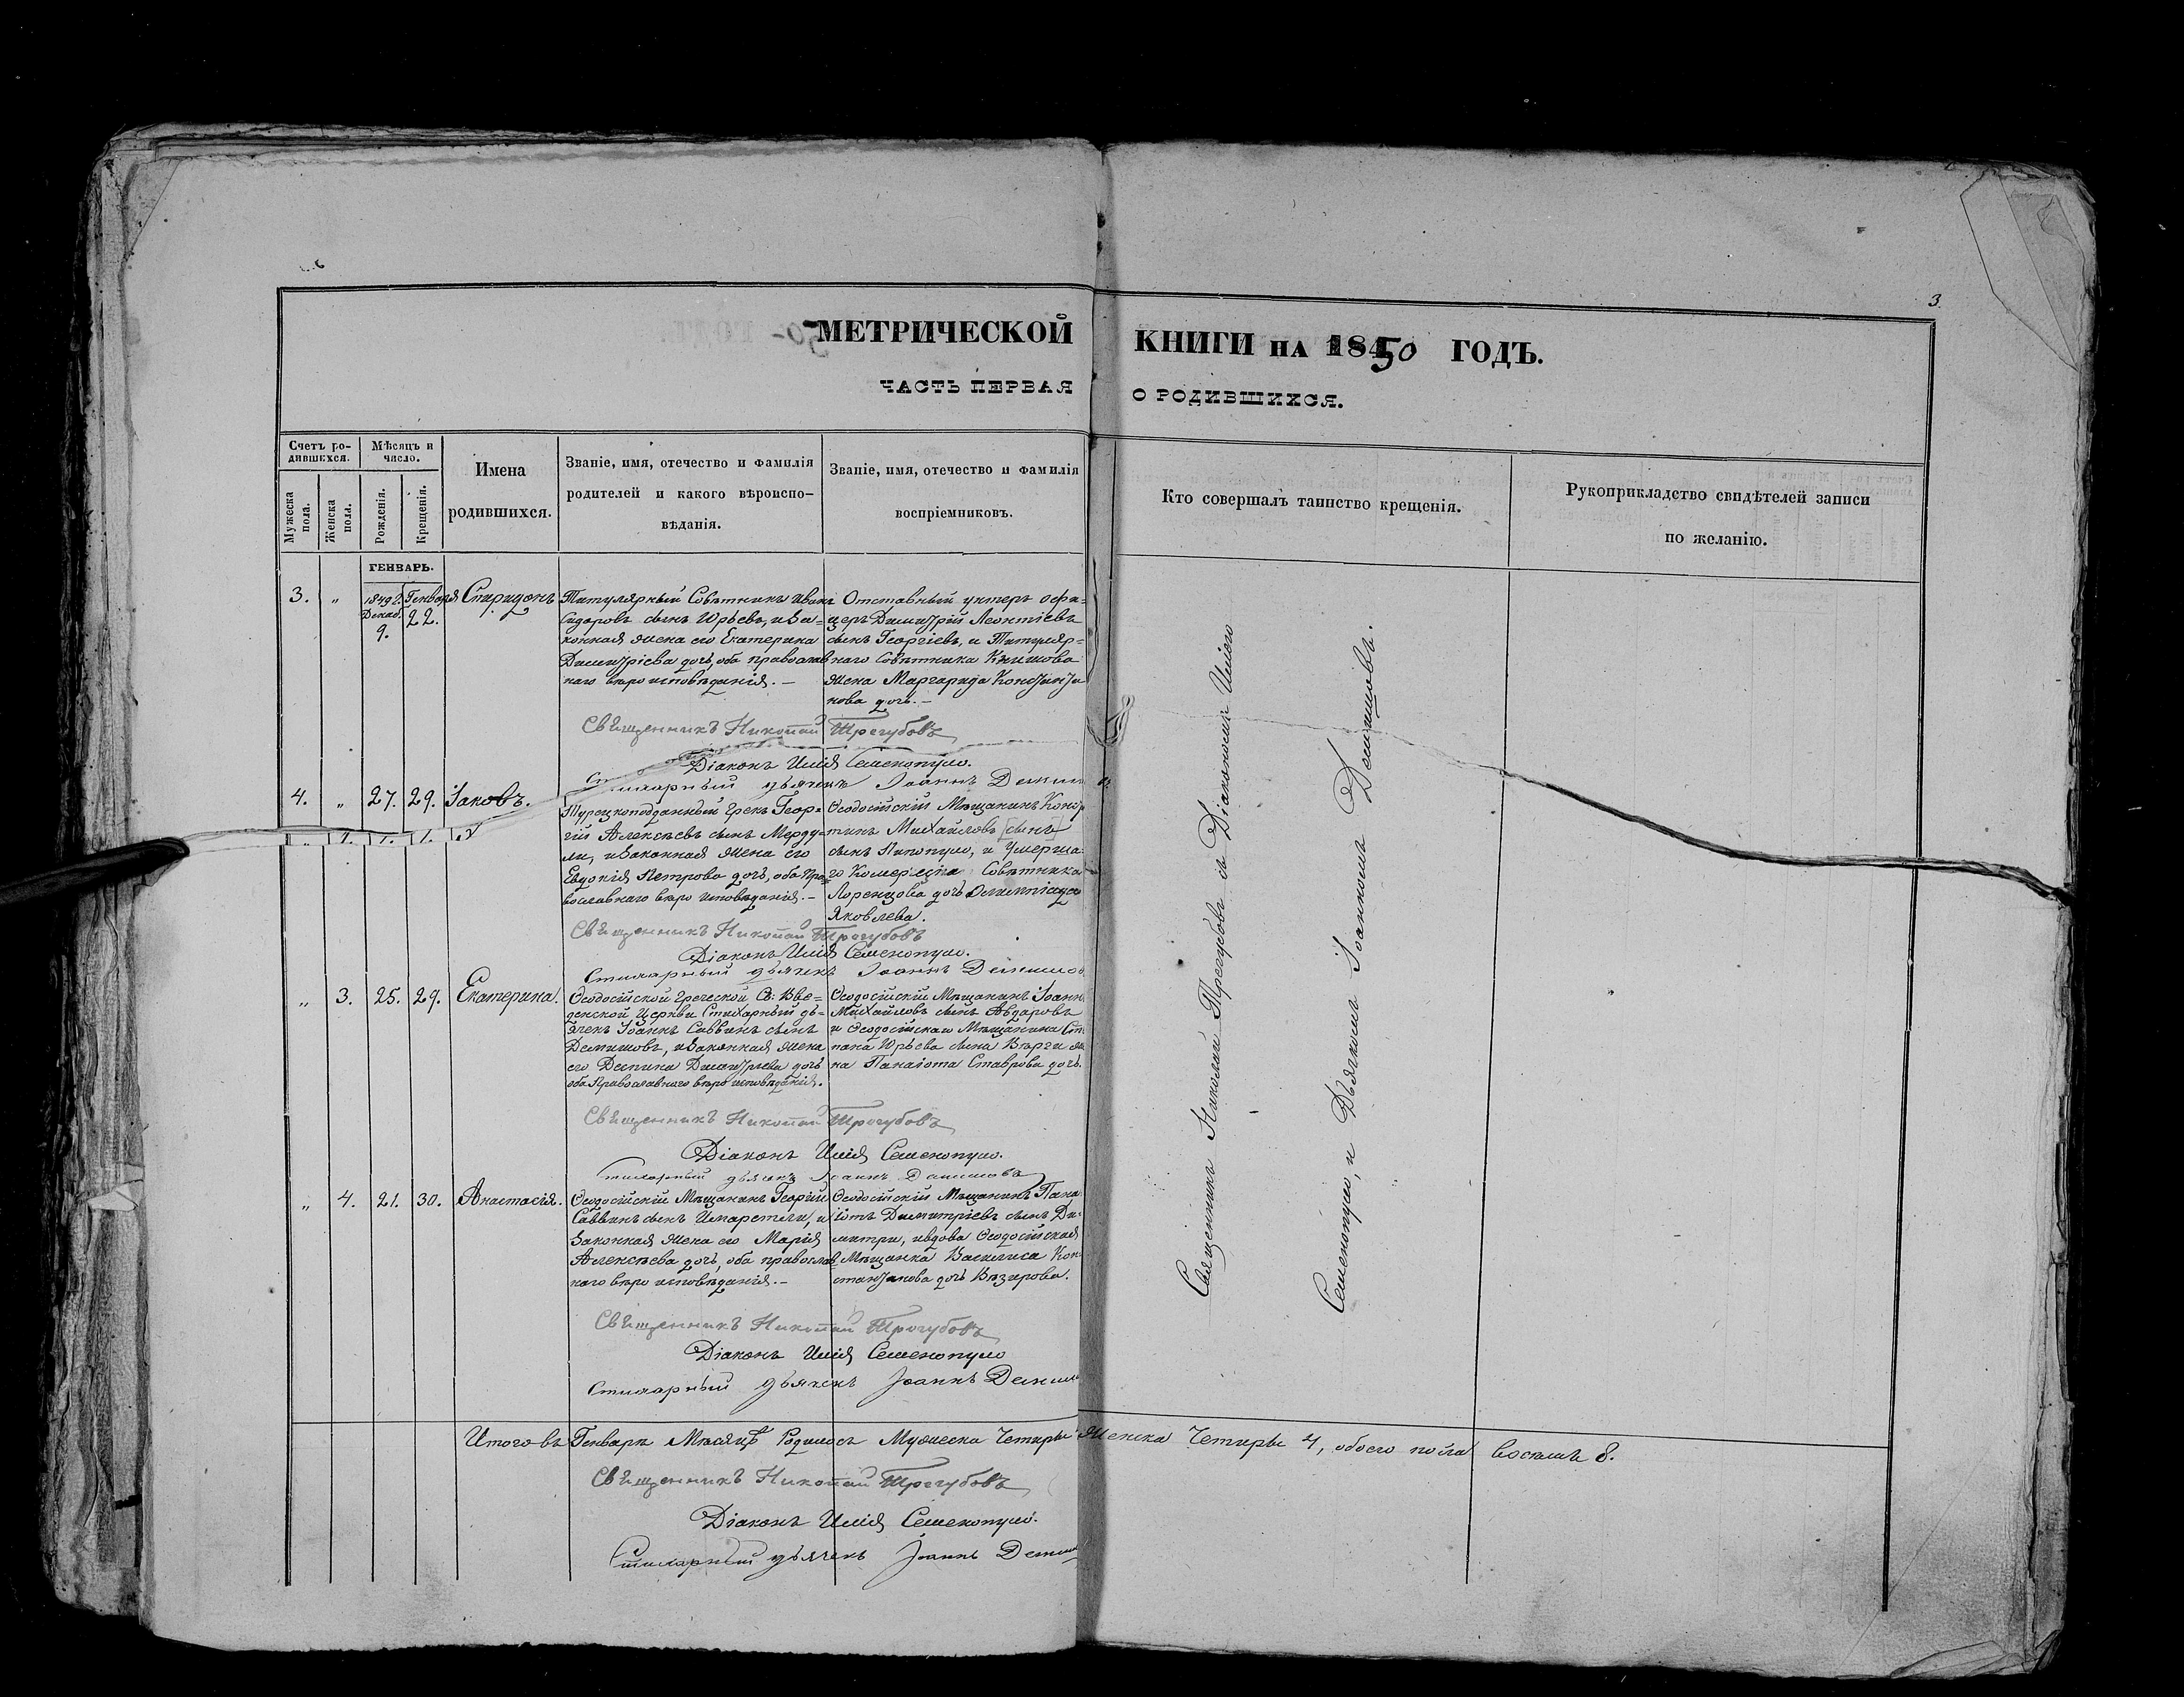 3.
МЕТРИЧЕСКОЙ КНИГИ НА 1850 ГОДЪ.
ЧАСТЬ ПЕРВАЯ О РОДИВШИХСЯ.
Счетъ родившихся.
Мужеска пола.
Женска пола.
Мѣсяцъ и число.
Рожденія.
Крещенія.
Имена родившихся.
Званіе, имя, отечество и фамилія
родителей и какого вѣроиспо-
вѣданія.
Званіе, имя, отечество и фамилія
воспріемниковъ.
Кто совершалъ таинство крещенія.
Рукоприкладство свидѣтелей записи
по желанію.
ГЕНВАРЬ.
3. „ 1849 г. Декаб. 9. Генваря 22. Спиридонъ
Титулярный Совѣтникъ Иванъ
Сидоровъ сынъ Юрьевъ, и за-
конная жена его Екатерина
Димитріева дочь, оба православ
наго вѣроисповѣданія. —
Отставный унтеръ офи-
церъ Димитрій Леонтіевъ
сынъ Георгіевъ, и Титуляр-
наго Совѣтника
жена Маргарида Константи
нова дочь. —
Священникъ Николай Трегубовъ
Діаконъ Илія Семенопуло.
Стихарный дьячекъ Іоаннъ
4. „ 27. 29. Іаковъ.
Турецкоподданный Грекъ Геор-
гій Алексѣевъ сынъ Мерду-
ли, и законная жена его
Евдокія Петрова дочь, оба Пра-
вославнаго вѣроисповѣданія. —
Ѳеодосійскій Мѣщанинъ Конст
тинъ Михайловъ [сынъ]
сынъ Пипопуло, и Умерша
го Комерціи Совѣтника
Лоренцова дочь Олимпіада
Яковлева.
Священникъ Николай Трегубовъ
Діаконъ Илія Семенопуло.
Стихарный дьячекъ Іоаннъ
„ 3. 25. 29. Екатерина.
Ѳеодосійской Греческой Св: Вве-
денской Церкви Стихарный дь-
ячекъ Іоаннъ Саввинъ сынъ
Демишовъ, и законная жена
его Деспина Димитріева дочь
оба Православнаго вѣроисповѣданія.
Ѳеодосійскій Мѣщанинъ Іоаннъ
Михайловъ сынъ Авдаровъ
и Ѳеодосійскаго Мѣщанина Сте
пана Юрьева сына Вѣрги же
на Панаіота Ставрова дочь.
Священникъ Николай Трегубовъ
Діаконъ Илія Семенопуло.
Стихарный дьячекъ Іоаннъ
„ 4. 21. 30. Анастасія.
Ѳеодосійскій Мѣщанинъ Георгій
Саввинъ сынъ Имаретли, и
законная жена его Марія
Алексѣева дочь, оба православ
наго вѣроисповѣданія. —
Ѳеодосійскій Мѣщанинъ Пана
іотъ Димитріевъ сынъ Ди-
митри, и вдова Ѳеодосійская
Мѣщанка Василиса Кон-
стантинова дочь Вѣзирова.
Священникъ Николай Трегубовъ
Діаконъ Илія Семенопуло
Стихарный дьячекъ Іоаннъ
Священникъ Николай Трегубовъ съ Діакономъ Иліею
Семенопуло, и Дьячкомъ Іоанномъ Демишовъ.
Итого въ Генварѣ Мѣсяцѣ Родилось Мужеска Четыры Женска Четыры 4, обоего пола восемь 8.
Священникъ Николай Трегубовъ
Діаконъ Илія Семенопуло.
Стихарный дьячекъ Іоаннъ